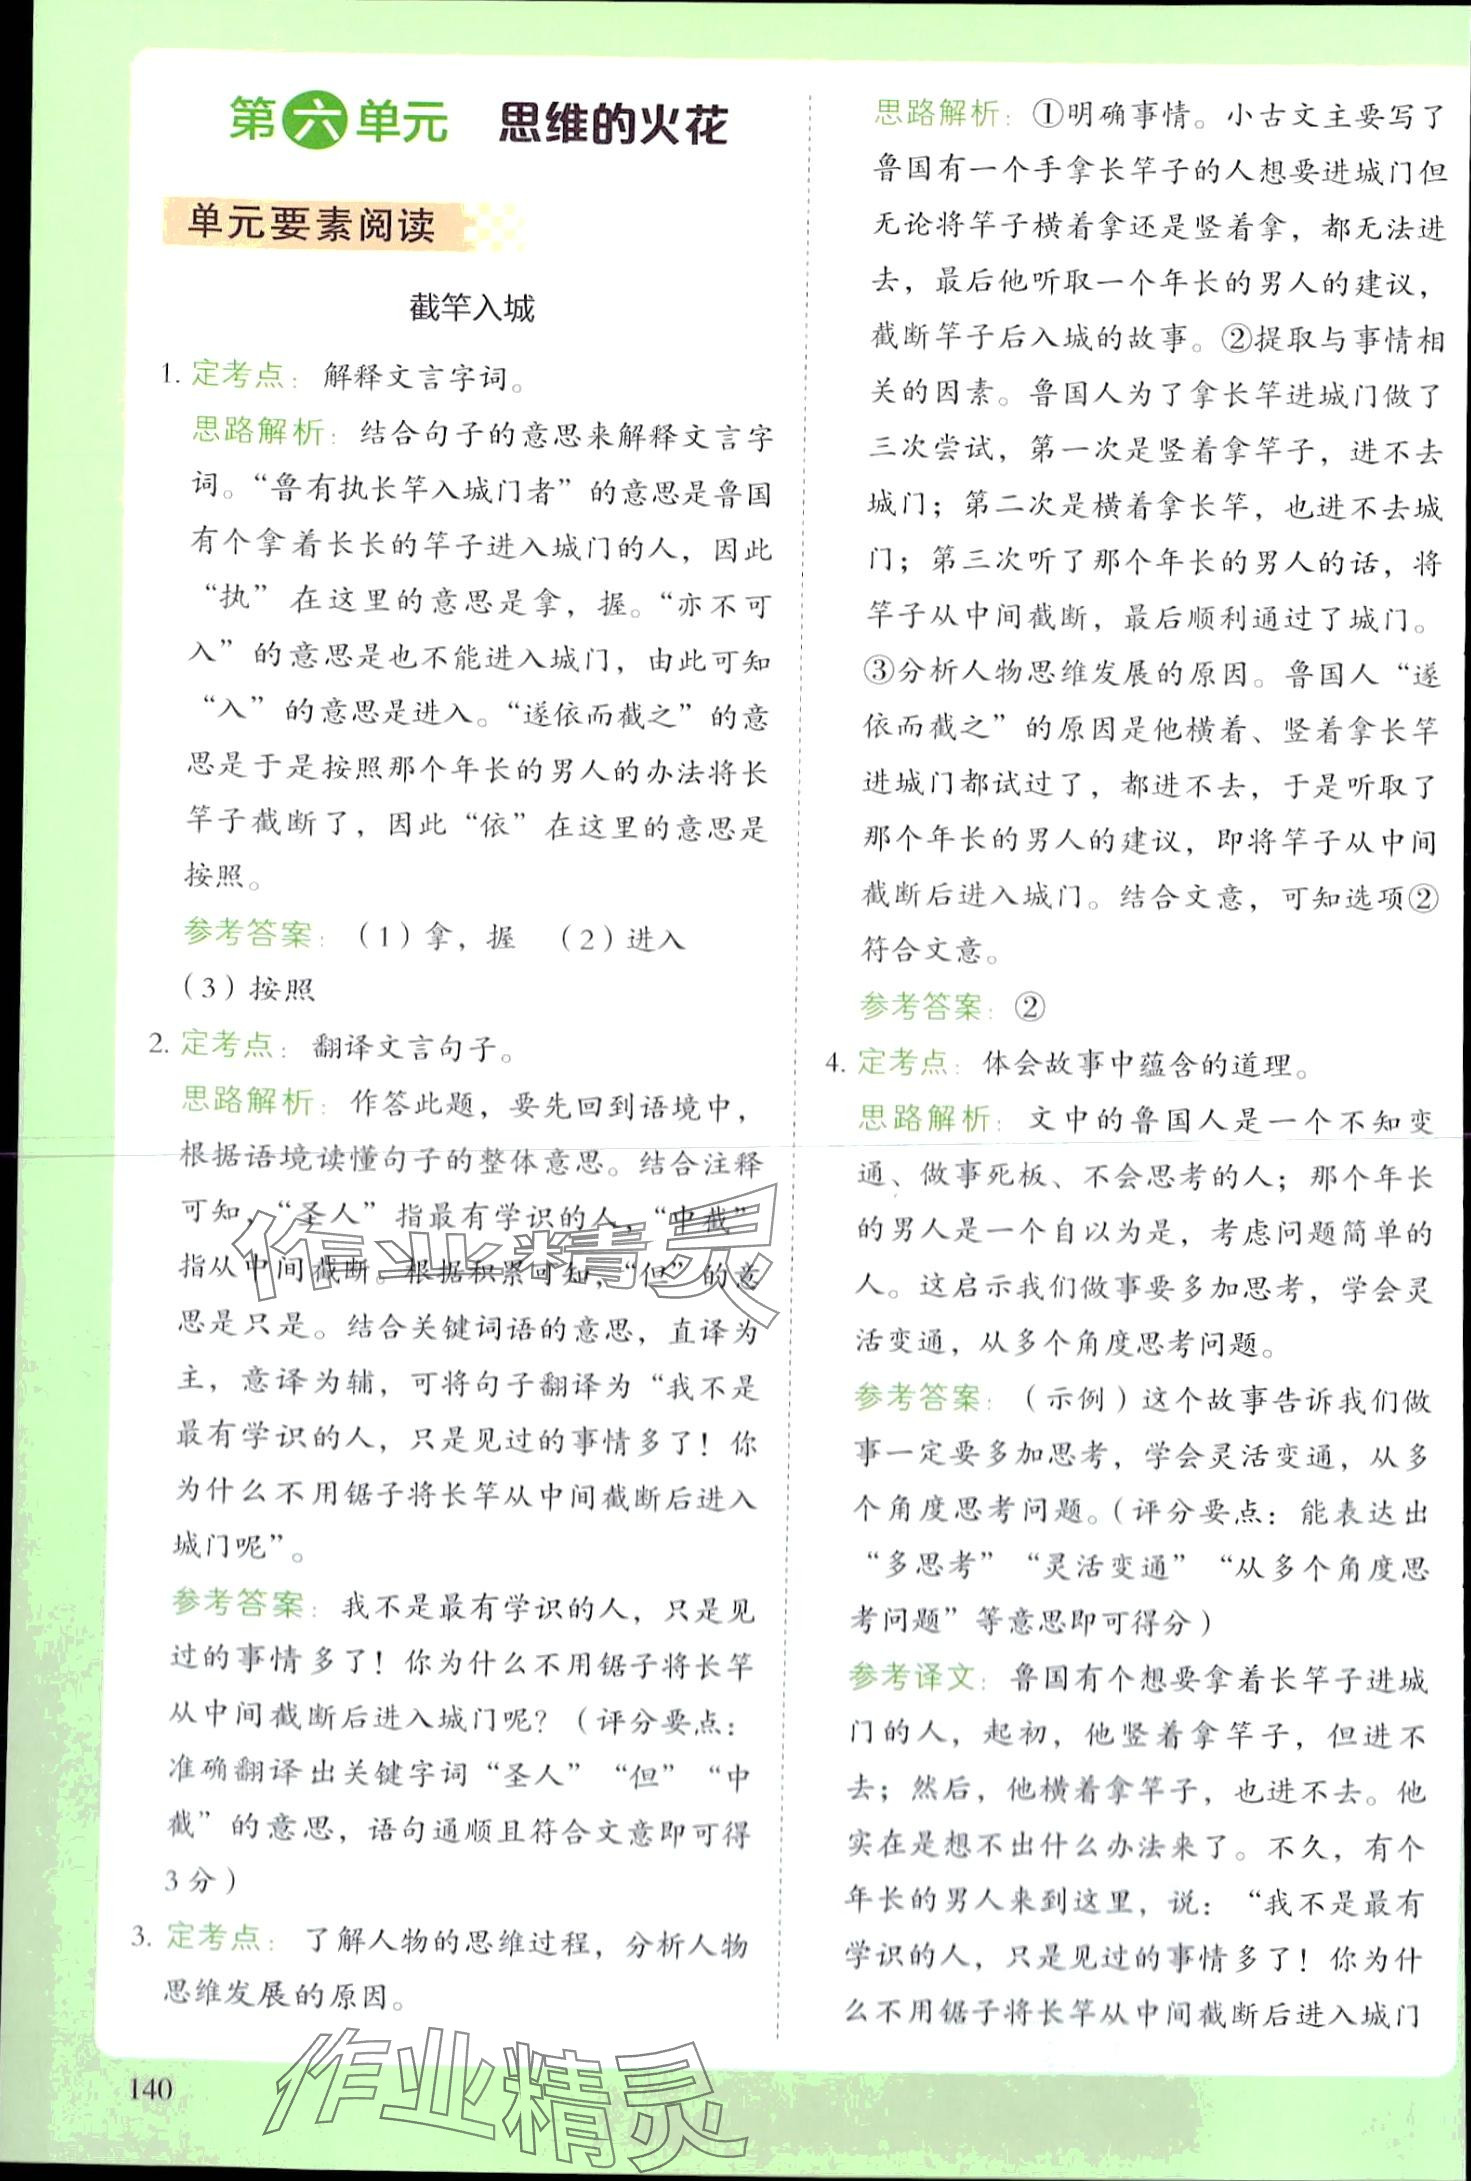 第六单元 思维的火花
单元要素阅读
截竿入城
1. 定考点：解释文言字词。
思路解析：结合句子的意思来解释文言字
词。“鲁有执长竿入城门者”的意思是鲁国
有个拿着长长的竿子进入城门的人，因此
“执”在这里的意思是拿，握。“亦不可
入”的意思是也不能进入城门，由此可知
“入”的意思是进入。“遂依而截之”的意
思是于是按照那个年长的男人的办法将长
竿子截断了，因此“依”在这里的意思是
按照。
参考答案：（1）拿，握 （2）进入
（3）按照
2. 定考点：翻译文言句子。
思路解析：作答此题，要先回到语境中，
根据语境读懂句子的整体意思。结合注释
可知，“圣人”指最有学识的人，“中截”
指从中间截断。根据积累可知，“但”的意
思是只是。结合关键词语的意思，直译为
主，意译为辅，可将句子翻译为“我不是
最有学识的人，只是见过的事情多了！你
为什么不用锯子将长竿从中间截断后进入
城门呢”。
参考答案：我不是最有学识的人，只是见
过的事情多了！你为什么不用锯子将长竿
从中间截断后进入城门呢？（评分要点：
准确翻译出关键字词“圣人”“但”“中
截”的意思，语句通顺且符合文意即可得
3分）
3. 定考点：了解人物的思维过程，分析人物
思维发展的原因。
思路解析：①明确事情。小古文主要写了
鲁国有一个手拿长竿子的人想要进城门但
无论将竿子横着拿还是竖着拿，都无法进
去，最后他听取一个年长的男人的建议，
截断竿子后入城的故事。②提取与事情相
关的因素。鲁国人为了拿长竿进城门做了
三次尝试，第一次是竖着拿竿子，进不去
城门；第二次是横着拿长竿，也进不去城
门；第三次听了那个年长的男人的话，将
竿子从中间截断，最后顺利通过了城门。
③分析人物思维发展的原因。鲁国人“遂
依而截之”的原因是他横着、竖着拿长竿
进城门都试过了，都进不去，于是听取了
那个年长的男人的建议，即将竿子从中间
截断后进入城门。结合文意，可知选项②
符合文意。
参考答案：②
4. 定考点：体会故事中蕴含的道理。
思路解析：文中的鲁国人是一个不知变
通、做事死板、不会思考的人；那个年长
的男人是一个自以为是，考虑问题简单的
人。这启示我们做事要多加思考，学会灵
活变通，从多个角度思考问题。
参考答案：（示例）这个故事告诉我们做
事一定要多加思考，学会灵活变通，从多
个角度思考问题。（评分要点：能表达出
“多思考”“灵活变通”“从多个角度思
考问题”等意思即可得分）
参考译文：鲁国有个想要拿着长竿子进城
门的人，起初，他竖着拿竿子，但进不
去；然后，他横着拿竿子，也进不去。他
实在是想不出什么办法来了。不久，有个
年长的男人来到这里，说：“我不是最有
学识的人，只是见过的事情多了！你为什
么不用锯子将长竿从中间截断后进入城门
140
作业精灵
作业精灵